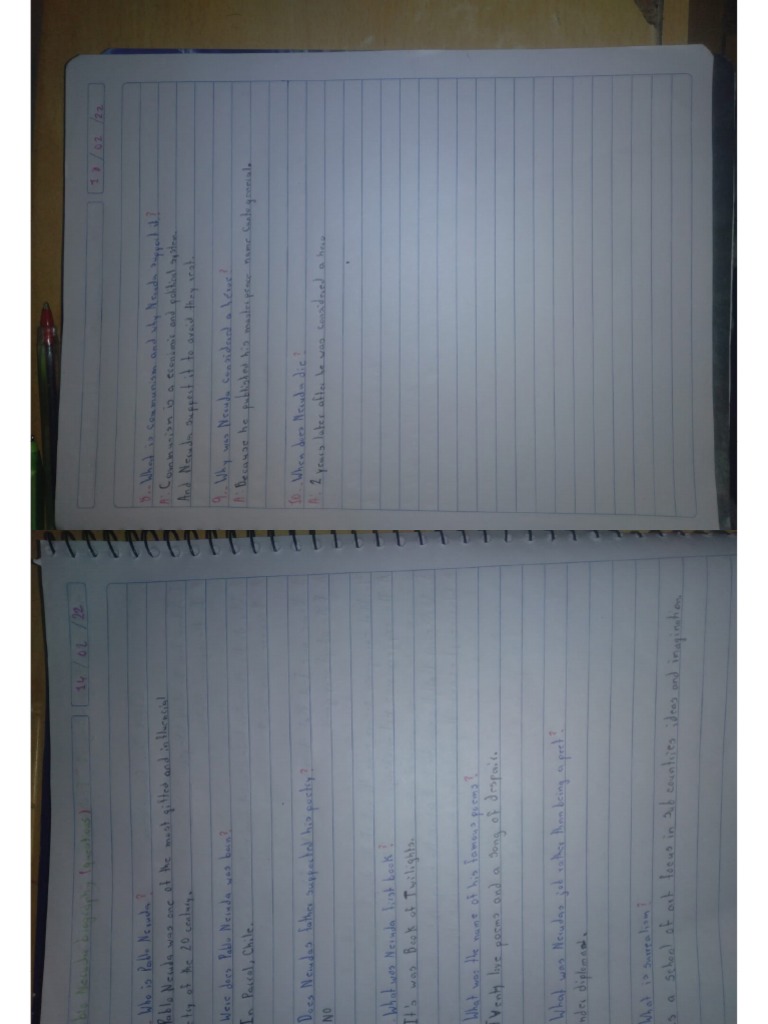 blo Neruda biography (questions)
14/02/22
Who is Pablo Neruda?
Pablo Neruda was one of the most gifted and influencial
try of the 20 century.
Were does Pablo Neruda was born?
In Parral, Chile.
Does Nerudas father supported his poetry?
NO
What was Neruda first book?
It's was Book of Twilights.
What was the name of his famous poems?
Twenty love poems and a song of despair.
What was Nerudas job rather than being a poet?
diplomat.
What is surrealism?
s a school of art focus in countries ideas and imagination
/02/22
8. What is communism and why Neruda support it?
A: Communism is a economic and political system.
And Neruda support it to avoid they
9. Why was Neruda considered a heroe?
A: Because he published his masterpiece name Canto general.
10. When does Neruda die?
A: 2 years later after he was considered a hero.